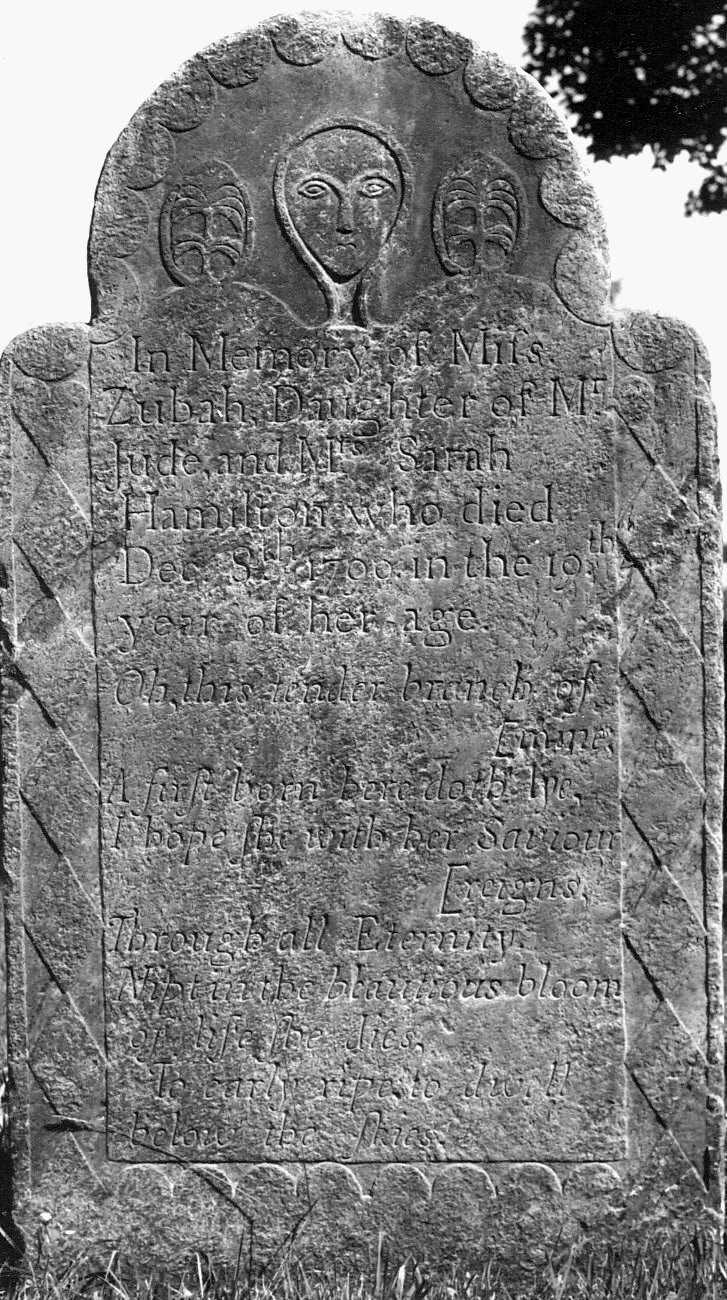 In Memory of Miſs.
Zubah, Daughter of Mr.
Jude, and Mrs. Sarah
Hamilton who died
Dec. 8th 1790. in the 10th
year of her age.
Oh, this tender branch of
[mine,
A first born here doth lye,
I hope ſhe with her Saviour
[reigns,
Through all Eternity.
Nipt in the beautious bloom
of life ſhe dies,
To early ripe to dwell
below the ſkies.